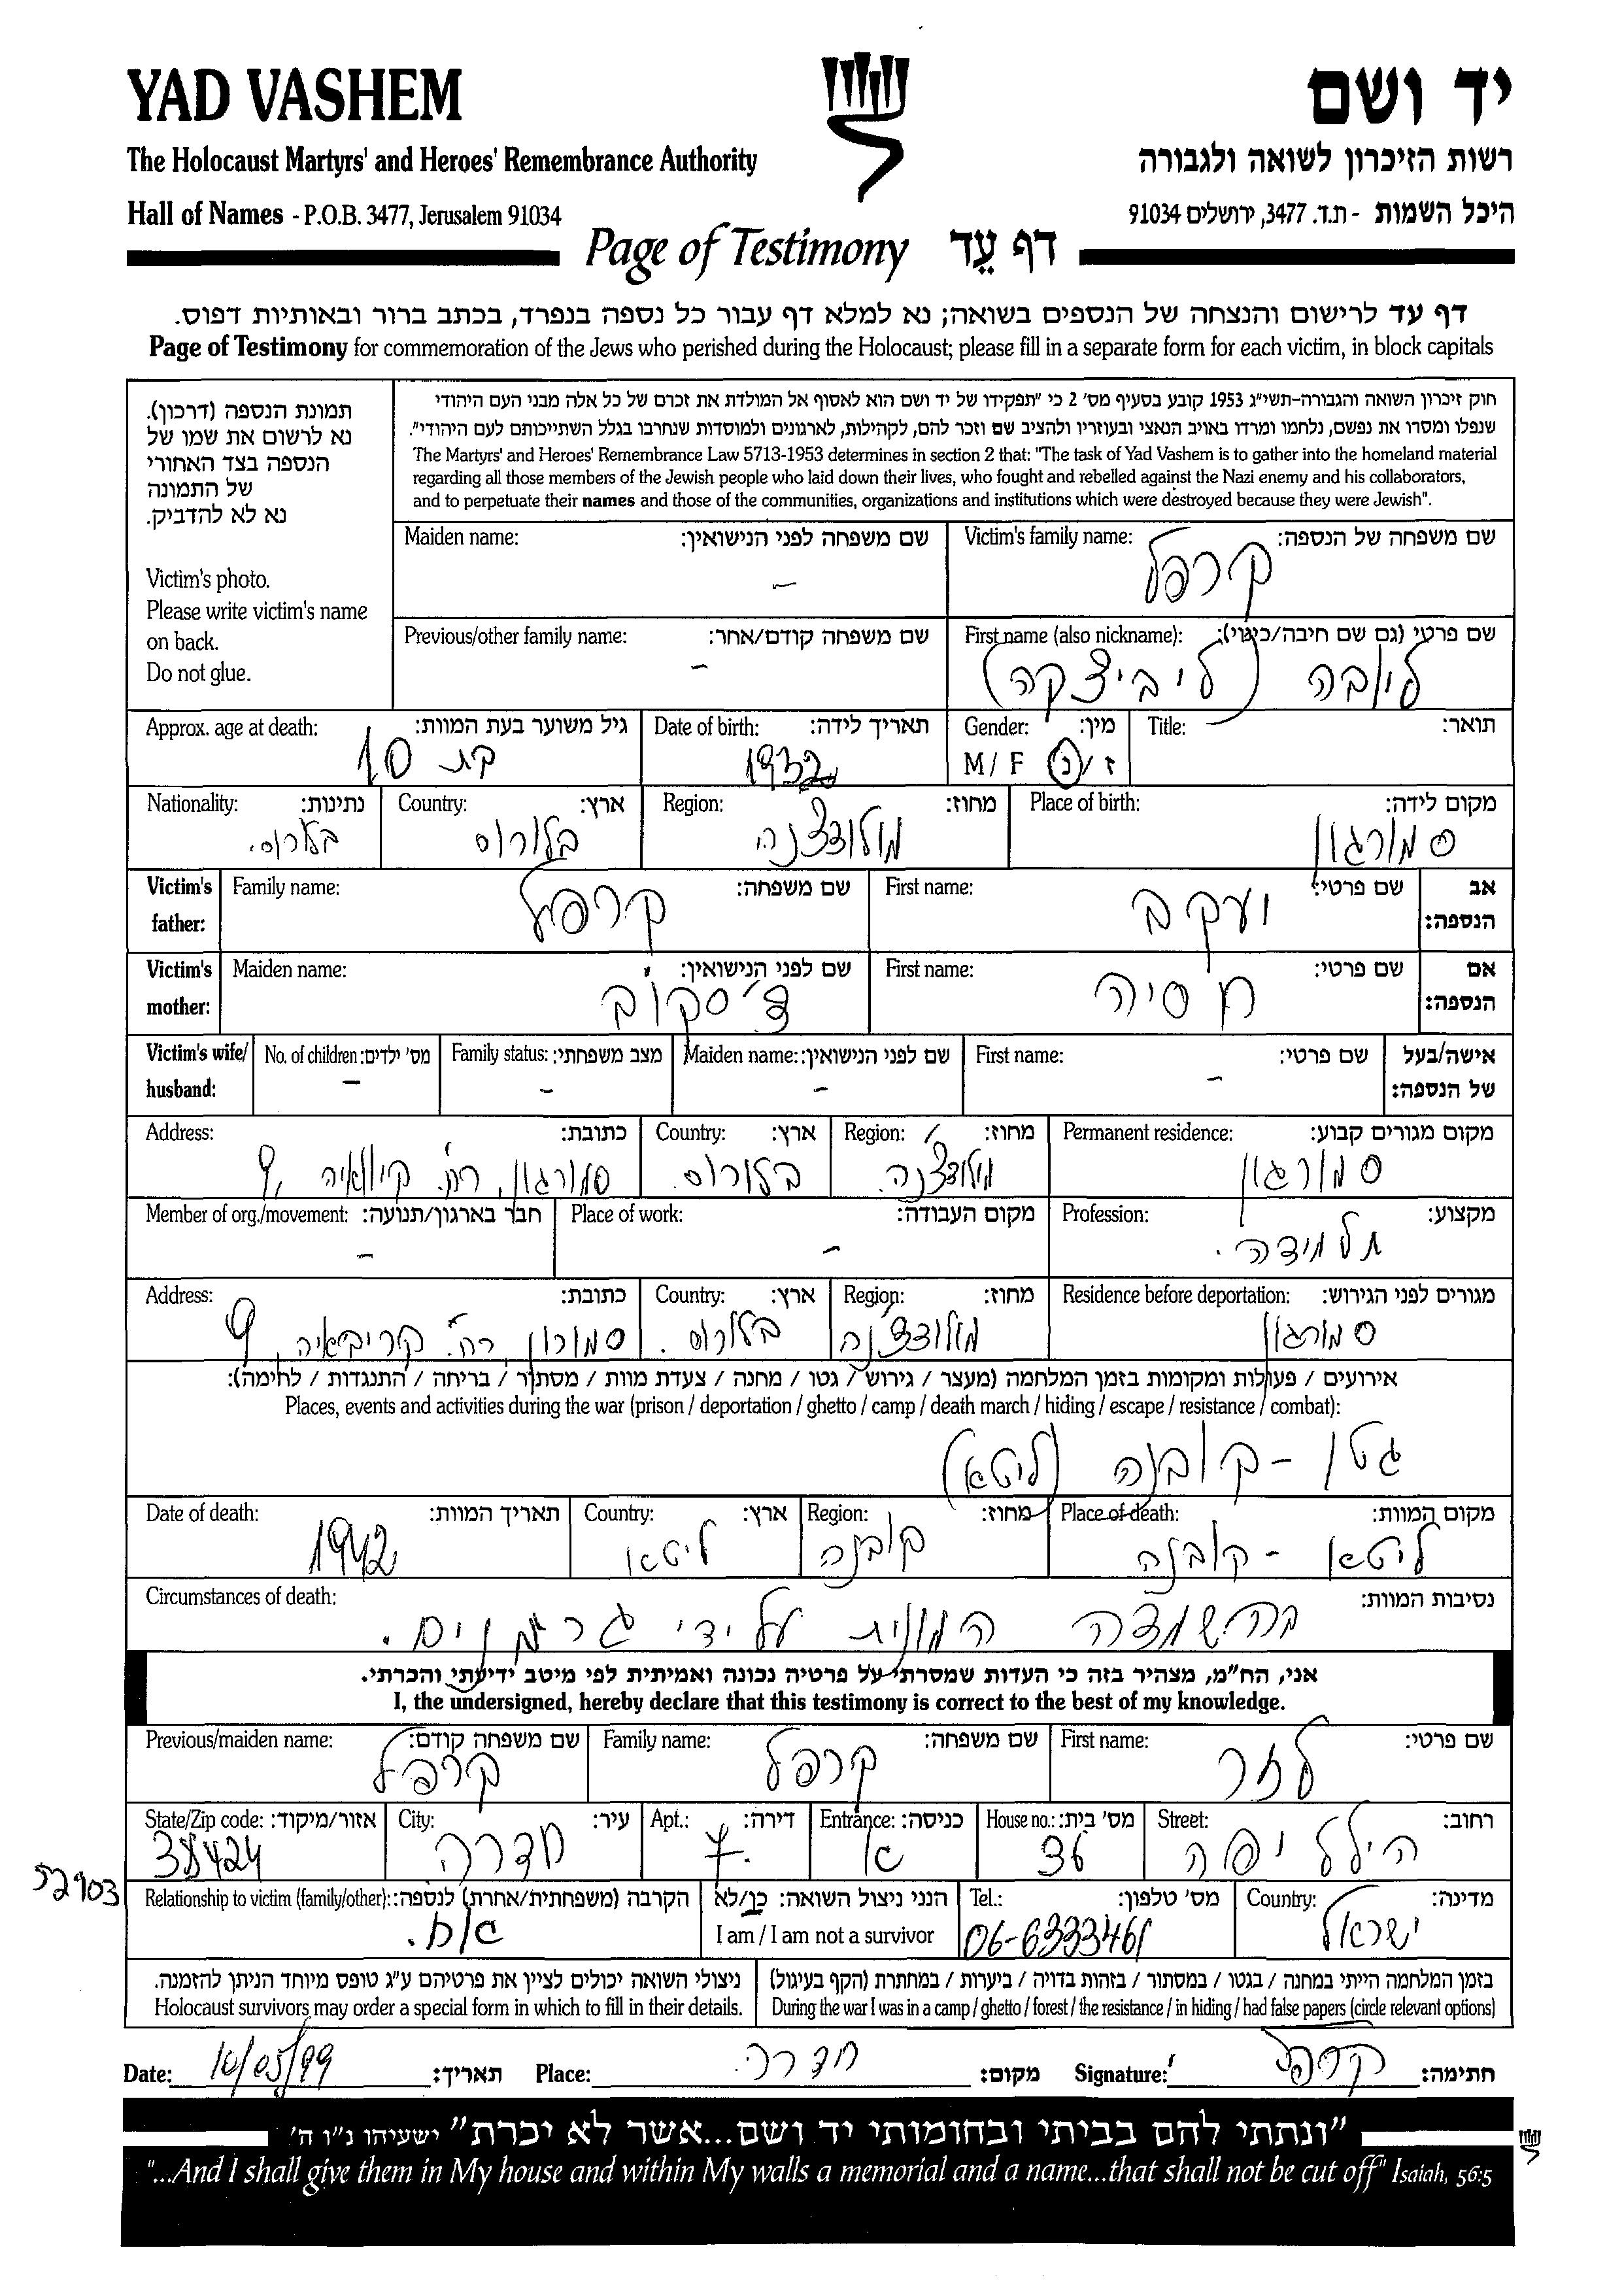 YAD VASHEM
יד ושם
The Holocaust Martyrs' and Heroes' Remembrance Authority
רשות הזיכרון לשואה ולגבורה
Hall of Names - P.O.B. 3477, Jerusalem 91034
היכל השמות - ת.ד. 3477, ירושלים 91034
Page of Testimony דף עֵד
דף עד לרישום והנצחה של הנספים בשואה; נא למלא דף עבור כל נספה בנפרד, בכתב ברור ובאותיות דפוס.
Page of Testimony for commemoration of the Jews who perished during the Holocaust; please fill in a separate form for each victim, in block capitals
תמונת הנספה (דרכון).
נא לרשום את שמו של
הנספה בצד האחורי
של התמונה
נא לא להדביק.
Victim's photo.
Please write victim's name
on back.
Do not glue.
חוק זיכרון השואה והגבורה-תשי"ג 1953 קובע בסעיף מס' 2 כי "תפקידו של יד ושם הוא לאסוף אל המולדת את זכרם של כל אלה מבני העם היהודי
שנפלו ומסרו את נפשם, נלחמו ומרדו באויב הנאצי ובעוזריו ולהציב שם וזכר להם, לקהילות, לארגונים ולמוסדות שנחרבו בגלל השתייכותם לעם היהודי".
The Martyrs' and Heroes' Remembrance Law 5713-1953 determines in section 2 that: "The task of Yad Vashem is to gather into the homeland material
regarding all those members of the Jewish people who laid down their lives, who fought and rebelled against the Nazi enemy and his collaborators,
and to perpetuate their names and those of the communities, organizations and institutions which were destroyed because they were Jewish".
Victim's family name: שם משפחה של הנספה:
קרפל
Maiden name: שם משפחה לפני הנישואין:
-
First name (also nickname): שם פרטי (גם שם חיבה/כינוי):
ליובה (ליביצקה)
Previous/other family name: שם משפחה קודם/אחר:
-
Title: תואר:
Gender: מין:
M / F ז / נ
Date of birth: תאריך לידה:
1932
Approx. age at death: גיל משוער בעת המוות:
בת 10
Place of birth: מקום לידה:
סמורגון
Region: מחוז:
מולודצ'נה
Country: ארץ:
בלורוס
Nationality: נתינות:
בלרוס.
Victim's father: אב הנספה:
First name: שם פרטי:
יעקב
Family name: שם משפחה:
קרפל
Victim's mother: אם הנספה:
First name: שם פרטי:
חסיה
Maiden name: שם לפני הנישואין:
Victim's wife/ husband: אישה/בעל של הנספה:
First name: שם פרטי:
-
Maiden name: שם לפני הנישואין:
-
Family status: מצב משפחתי:
-
No. of children: מס' ילדים:
-
Permanent residence: מקום מגורים קבוע:
סמורגון
Region: מחוז:
מולודצ'נה
Country: ארץ:
בלורוס.
Address: כתובת:
סמורגון, רח'. 9
Profession: מקצוע:
תלמידה.
Place of work: מקום העבודה:
-
Member of org./movement: חבר בארגון/תנועה:
-
Residence before deportation: מגורים לפני הגירוש:
סמורגון
Region: מחוז:
מולודצ'נה
Country: ארץ:
בלורוס.
Address: כתובת:
רח'. 9
אירועים / פעולות ומקומות בזמן המלחמה (מעצר / גירוש / גטו / מחנה / צעדת מוות / מסתור / בריחה / התנגדות / לחימה):
Places, events and activities during the war (prison / deportation / ghetto / camp / death march / hiding / escape / resistance / combat):
גטו - קובנה (ליטא)
Place of death: מקום המוות:
ליטא - קובנה
Region: מחוז:
קובנה
Country: ארץ:
ליטא
Date of death: תאריך המוות:
1942
Circumstances of death: נסיבות המוות:
בהשמדה המונית על ידי גרמנים.
אני, הח"מ, מצהיר בזה כי העדות שמסרתי על פרטיה נכונה ואמיתית לפי מיטב ידיעתי והכרתי.
I, the undersigned, hereby declare that this testimony is correct to the best of my knowledge.
First name: שם פרטי:
לזר
Family name: שם משפחה:
קרפל
Previous/maiden name: שם משפחה קודם:
קרפל
Street: רחוב:
הילל יפה
House no.: מס' בית:
36
Entrance: כניסה:
א
Apt.: דירה:
7.
City: עיר:
חדרה
State/Zip code: אזור/מיקוד:
38424
52903
Country: מדינה:
ישראל
Tel.: מס' טלפון:
06-6333461
הנני ניצול השואה: כן/לא
I am / I am not a survivor
Relationship to victim (family/other): הקרבה (משפחתית/אחרת) לנספה:
אח.
בזמן המלחמה הייתי במחנה / בגטו / במסתור / בזהות בדויה / ביערות / במחתרת (הקף בעיגול)
During the war I was in a camp / ghetto / forest / the resistance / in hiding / had false papers (circle relevant options)
ניצולי השואה יכולים לציין את פרטיהם ע"ג טופס מיוחד הניתן להזמנה.
Holocaust survivors may order a special form in which to fill in their details.
Date: 10/05/99 תאריך: Place: חדרה מקום: Signature: קרפל חתימה:
"ונתתי להם בביתי ובחומותי יד ושם...אשר לא יכרת" ישעיהו נ"ו ה'
"...And I shall give them in My house and within My walls a memorial and a name...that shall not be cut off" Isaiah, 56:5